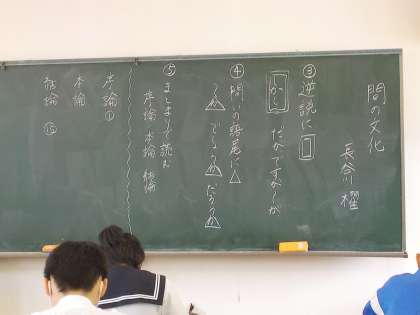 間の文化
長谷川 櫂
③ 逆説に□
しかし だが ですが
④ 問いの語尾に△
〜か でしょうか だろうか
⑤ まとまりで読む
序論 本論 結論
序論①
本論
結論